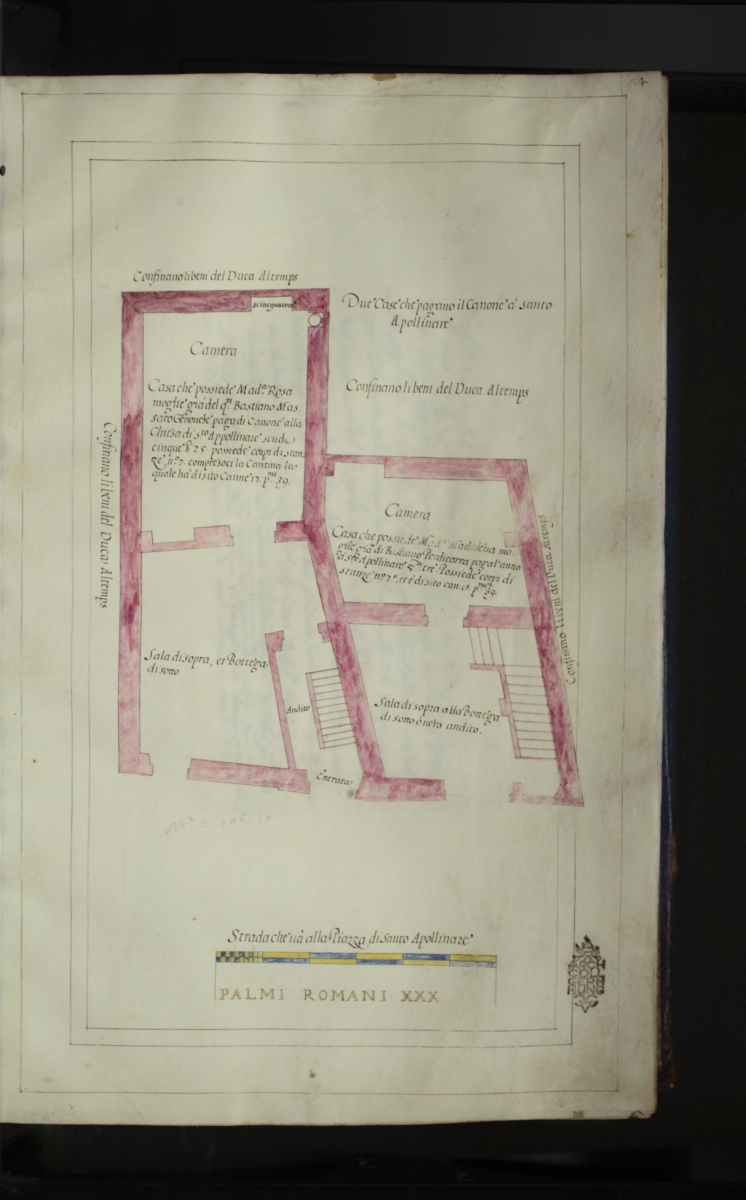 Confinano li beni del Duca Altemps
sciacquatore
Due Case che pagano il Canone à santo
Apollinare
Camera
Confinano li beni del Duca Altemps
Casa che possiede Mad.ª Rosa
moglie già del q.m Bastiano Mas
saro Genovese paga di Canone alla
Chiesa di S.to Appollinare scudi
cinque 25. possiede corpi di stan
ze n.º 7. compresoci la Cantina la
quale ha di sito Canne 17. p.mi 39.
Confinano li beni del Duca Altemps
Camera
Casa che possiede Mad.ª Madalena mo
glie già di Bastiano paga l'anno
à s.to Apollinare tre Possiede corpi di
stanze n.º 7.º, et è di sito can: p.mi 39.
Confinano li beni del Duca Altemps
Sala di sopra, et Bottega
di sotto
Andito
Sala di sopra alla Bottega
di sotto ò vero andito.
Entrata
= 106.50
Strada che và alla Piazza di Santo Apollinare
PALMI ROMANI XXX